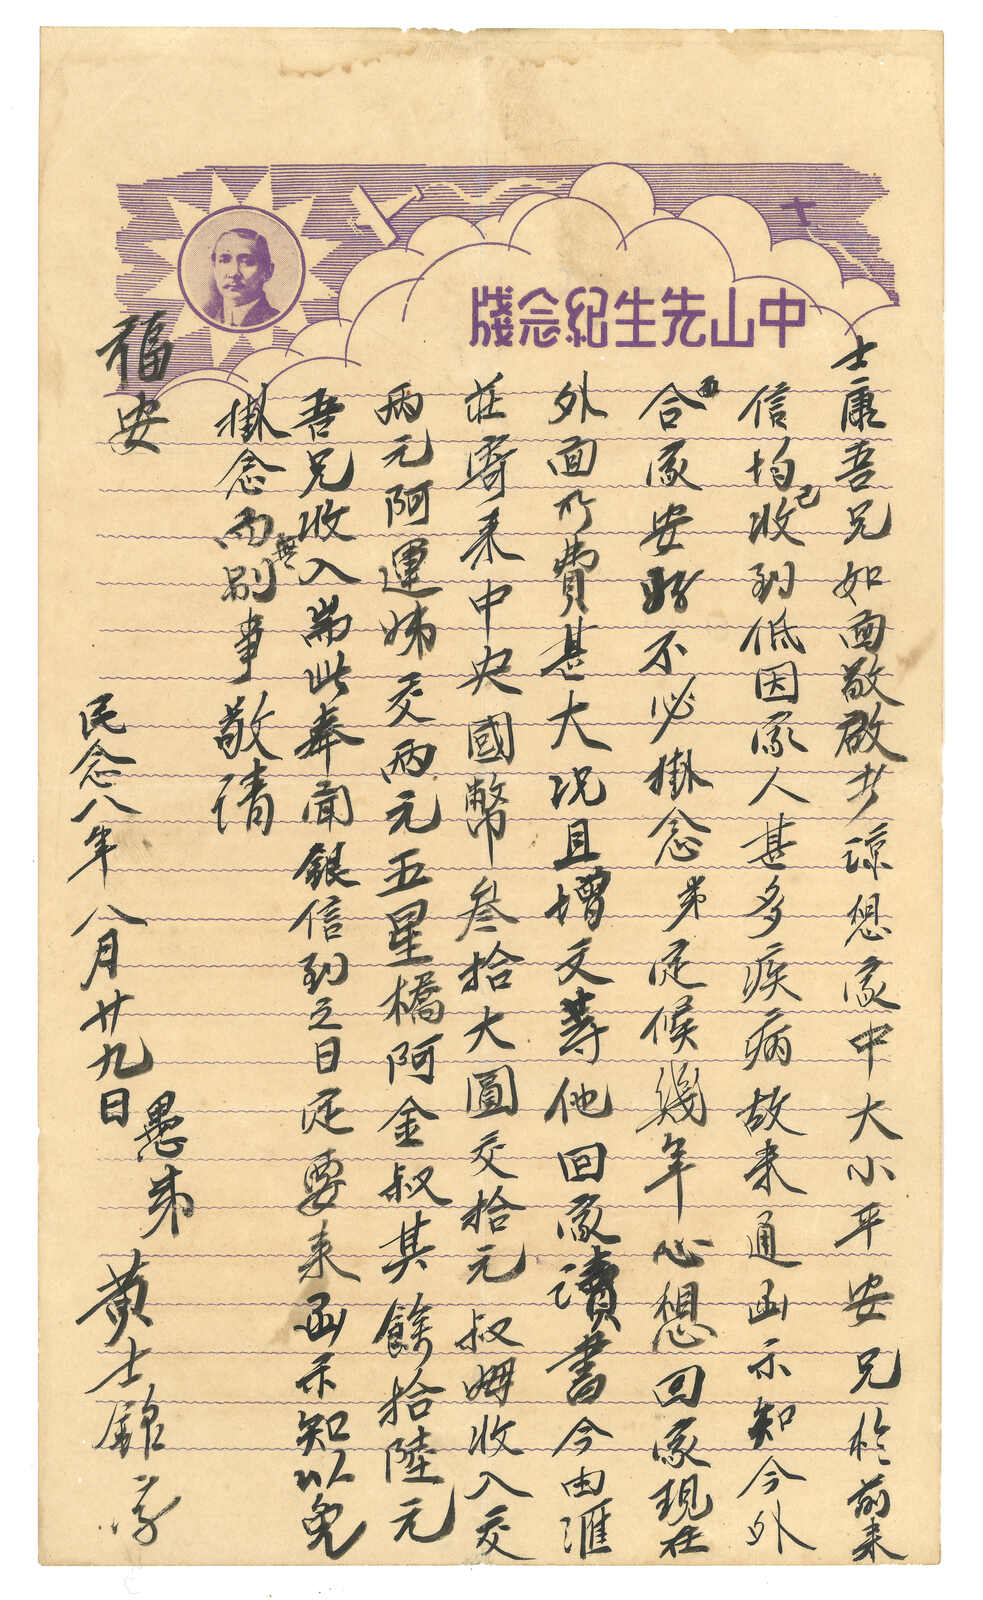 中山先生紀念牋
士康吾兄如面敬啟者諒想家中大小平安兄於前來
信均已收到低因家人甚多疾病故未通函示知今外
面合家安好不必掛念弟定候幾年心想回家現在
外面所費甚大况且增文等他回家讀書今由滙
莊寄來中央國幣叁拾大圓交拾元叔姆收入交
兩元阿運姊交兩元五星橋阿金叔其餘拾陸元
吾兄收入耑此奉聞銀信到之日定要來函示知以免
掛念而無別事敬請
福安
民念八年八月廿九日
愚弟黄士錦